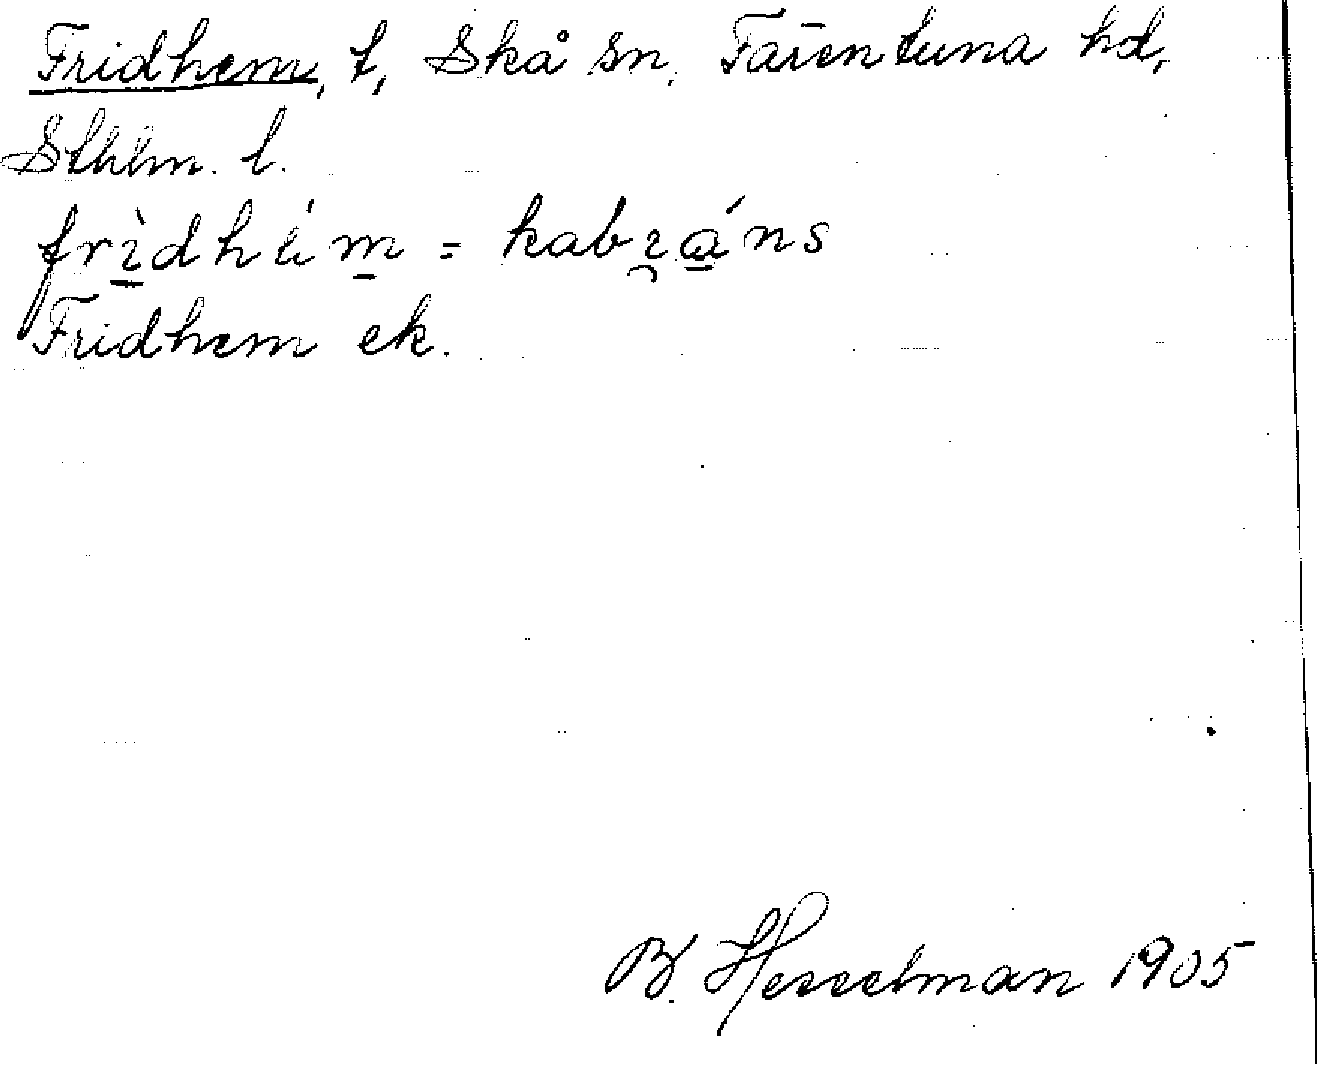 Fridhem, t, Skå sn, Färentuna hd,
Sthlm. l.
frìdhém = kabráns
Fridhem ek.
B. Hesselman 1905